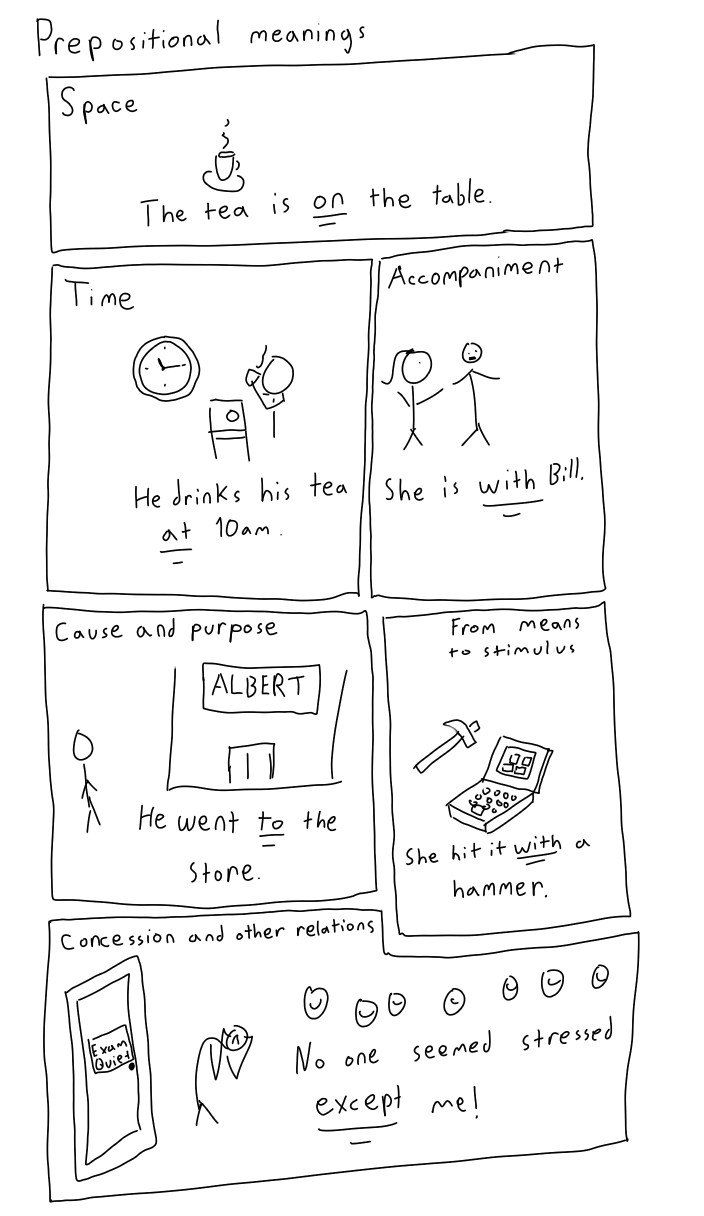 Prepositional meanings
Space
The tea is on the table.
Time
He drinks his tea
at 10am.
Accompaniment
She is with Bill.
Cause and purpose
ALBERT
He went to the
store.
From means
to stimulus
She hit it with a
hammer.
Concession and other relations
Exam
Quiet
No one seemed stressed
except me!